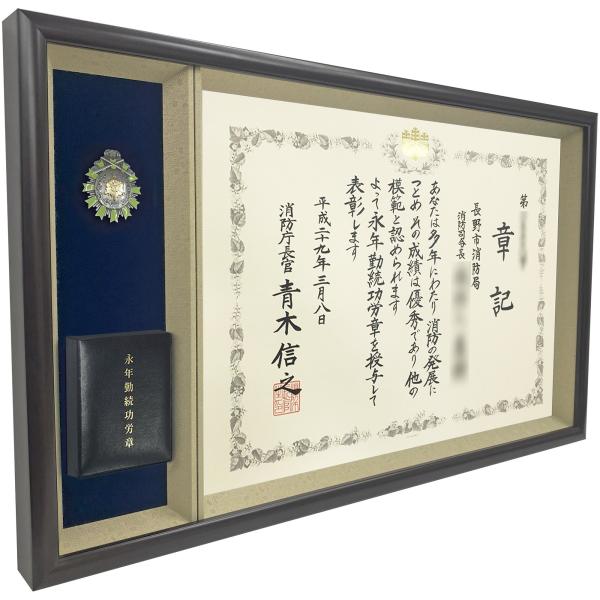 章記
第
長野市消防局
消防司令長
あなたは多年にわたり消防の発展に
つとめその成績は優秀であり他の
模範と認められます
よって永年勤続功労章を授与して
表彰します
平成二十九年三月八日
消防庁長官 青木信之
永年勤続功労章